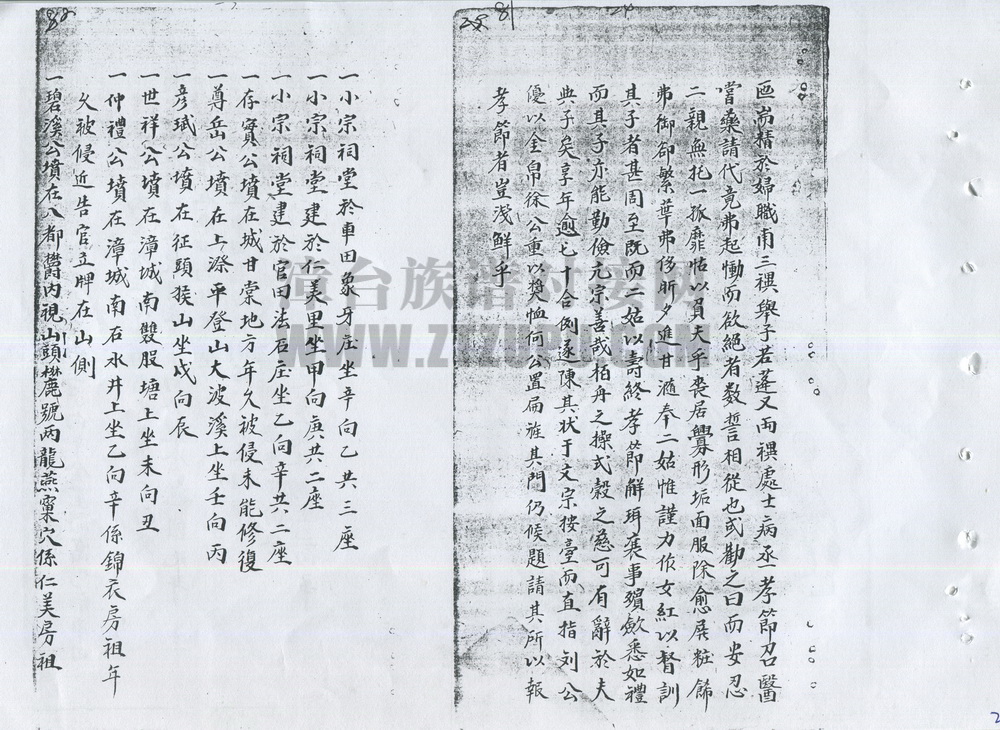 匜耑精於婦職甫三禩舉子若蓬又兩禩處士病亟孝節召醫
嘗藥請代竟弗起慟而欲絕者数誓相從也或勸之曰而安忍
二親無托一孤靡怙以負夫乎丧居鬖形垢面服除愈屏粧餙
弗御卻繁華弗侈昕夕進甘滫奉二姑惟謹力作女紅以督訓
其子者甚周至既而二姑以壽終孝節觧珥襄事殯歛悉如禮
而其子亦能勤儉亢宗善哉栢舟之操式穀之慈可有辭於夫
與子矣享年逾七十合例遂陳其状于文宗按臺而直指刘公
優以金帛徐公重以奬恤何公置扁旌其門仍候題請其所以報
孝節者豈浅鮮乎
一小宗祠堂於車田象牙庄坐辛向乙共三座
一小宗祠堂建於仁美里坐甲向庚共二座
一小宗祠堂建於官田法石庄坐乙向辛共二座
一存實公墳在城甘棠地方年久被侵未能修復
一尊岳公墳在上漈平登山大波溪上坐壬向丙
一彦珷公墳在征頭猴山坐戌向辰
一世祥公墳在漳城南雙股塘上坐未向丑
一仲禮公墳在漳城南石水井上坐乙向辛係錦衣房祖年
久被侵近告官立牌在山側
一碧溪公墳在八都欝内視山頭麓號两龍燕窠穴係仁美房祖
漳台族谱对接网
WWW.ZTZUPU.COM
88
81